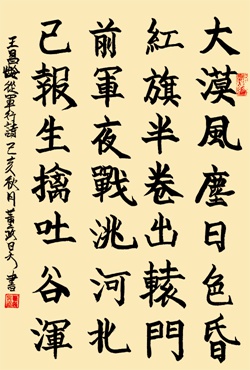 大漠風塵日色昏
紅旗半卷出轅門
前軍夜戰洮河北
已報生擒吐谷渾
王昌齡從軍行詩 己亥秋月 董 書